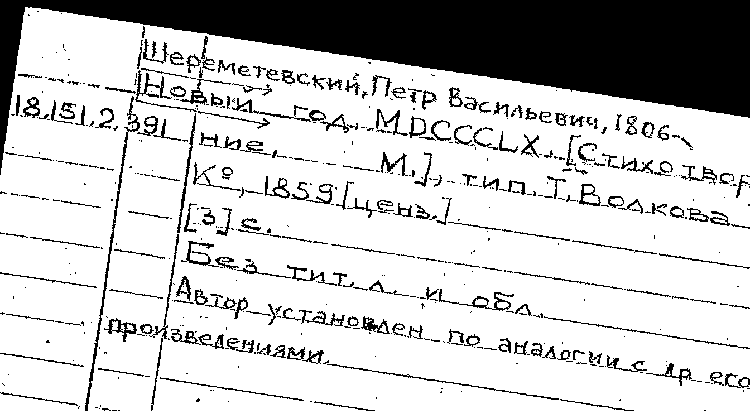 Шереметевский, Петр Васильевич, 1806-
Новый год. MDCCCLX. [Стихотвор
18.151.2.391
ние. М.], тип. Т. Волкова
К°, 1859 [ценз.]
[3] с.
Без тит. л. и обл.
Автор установлен по аналогии с др его
произведениями.